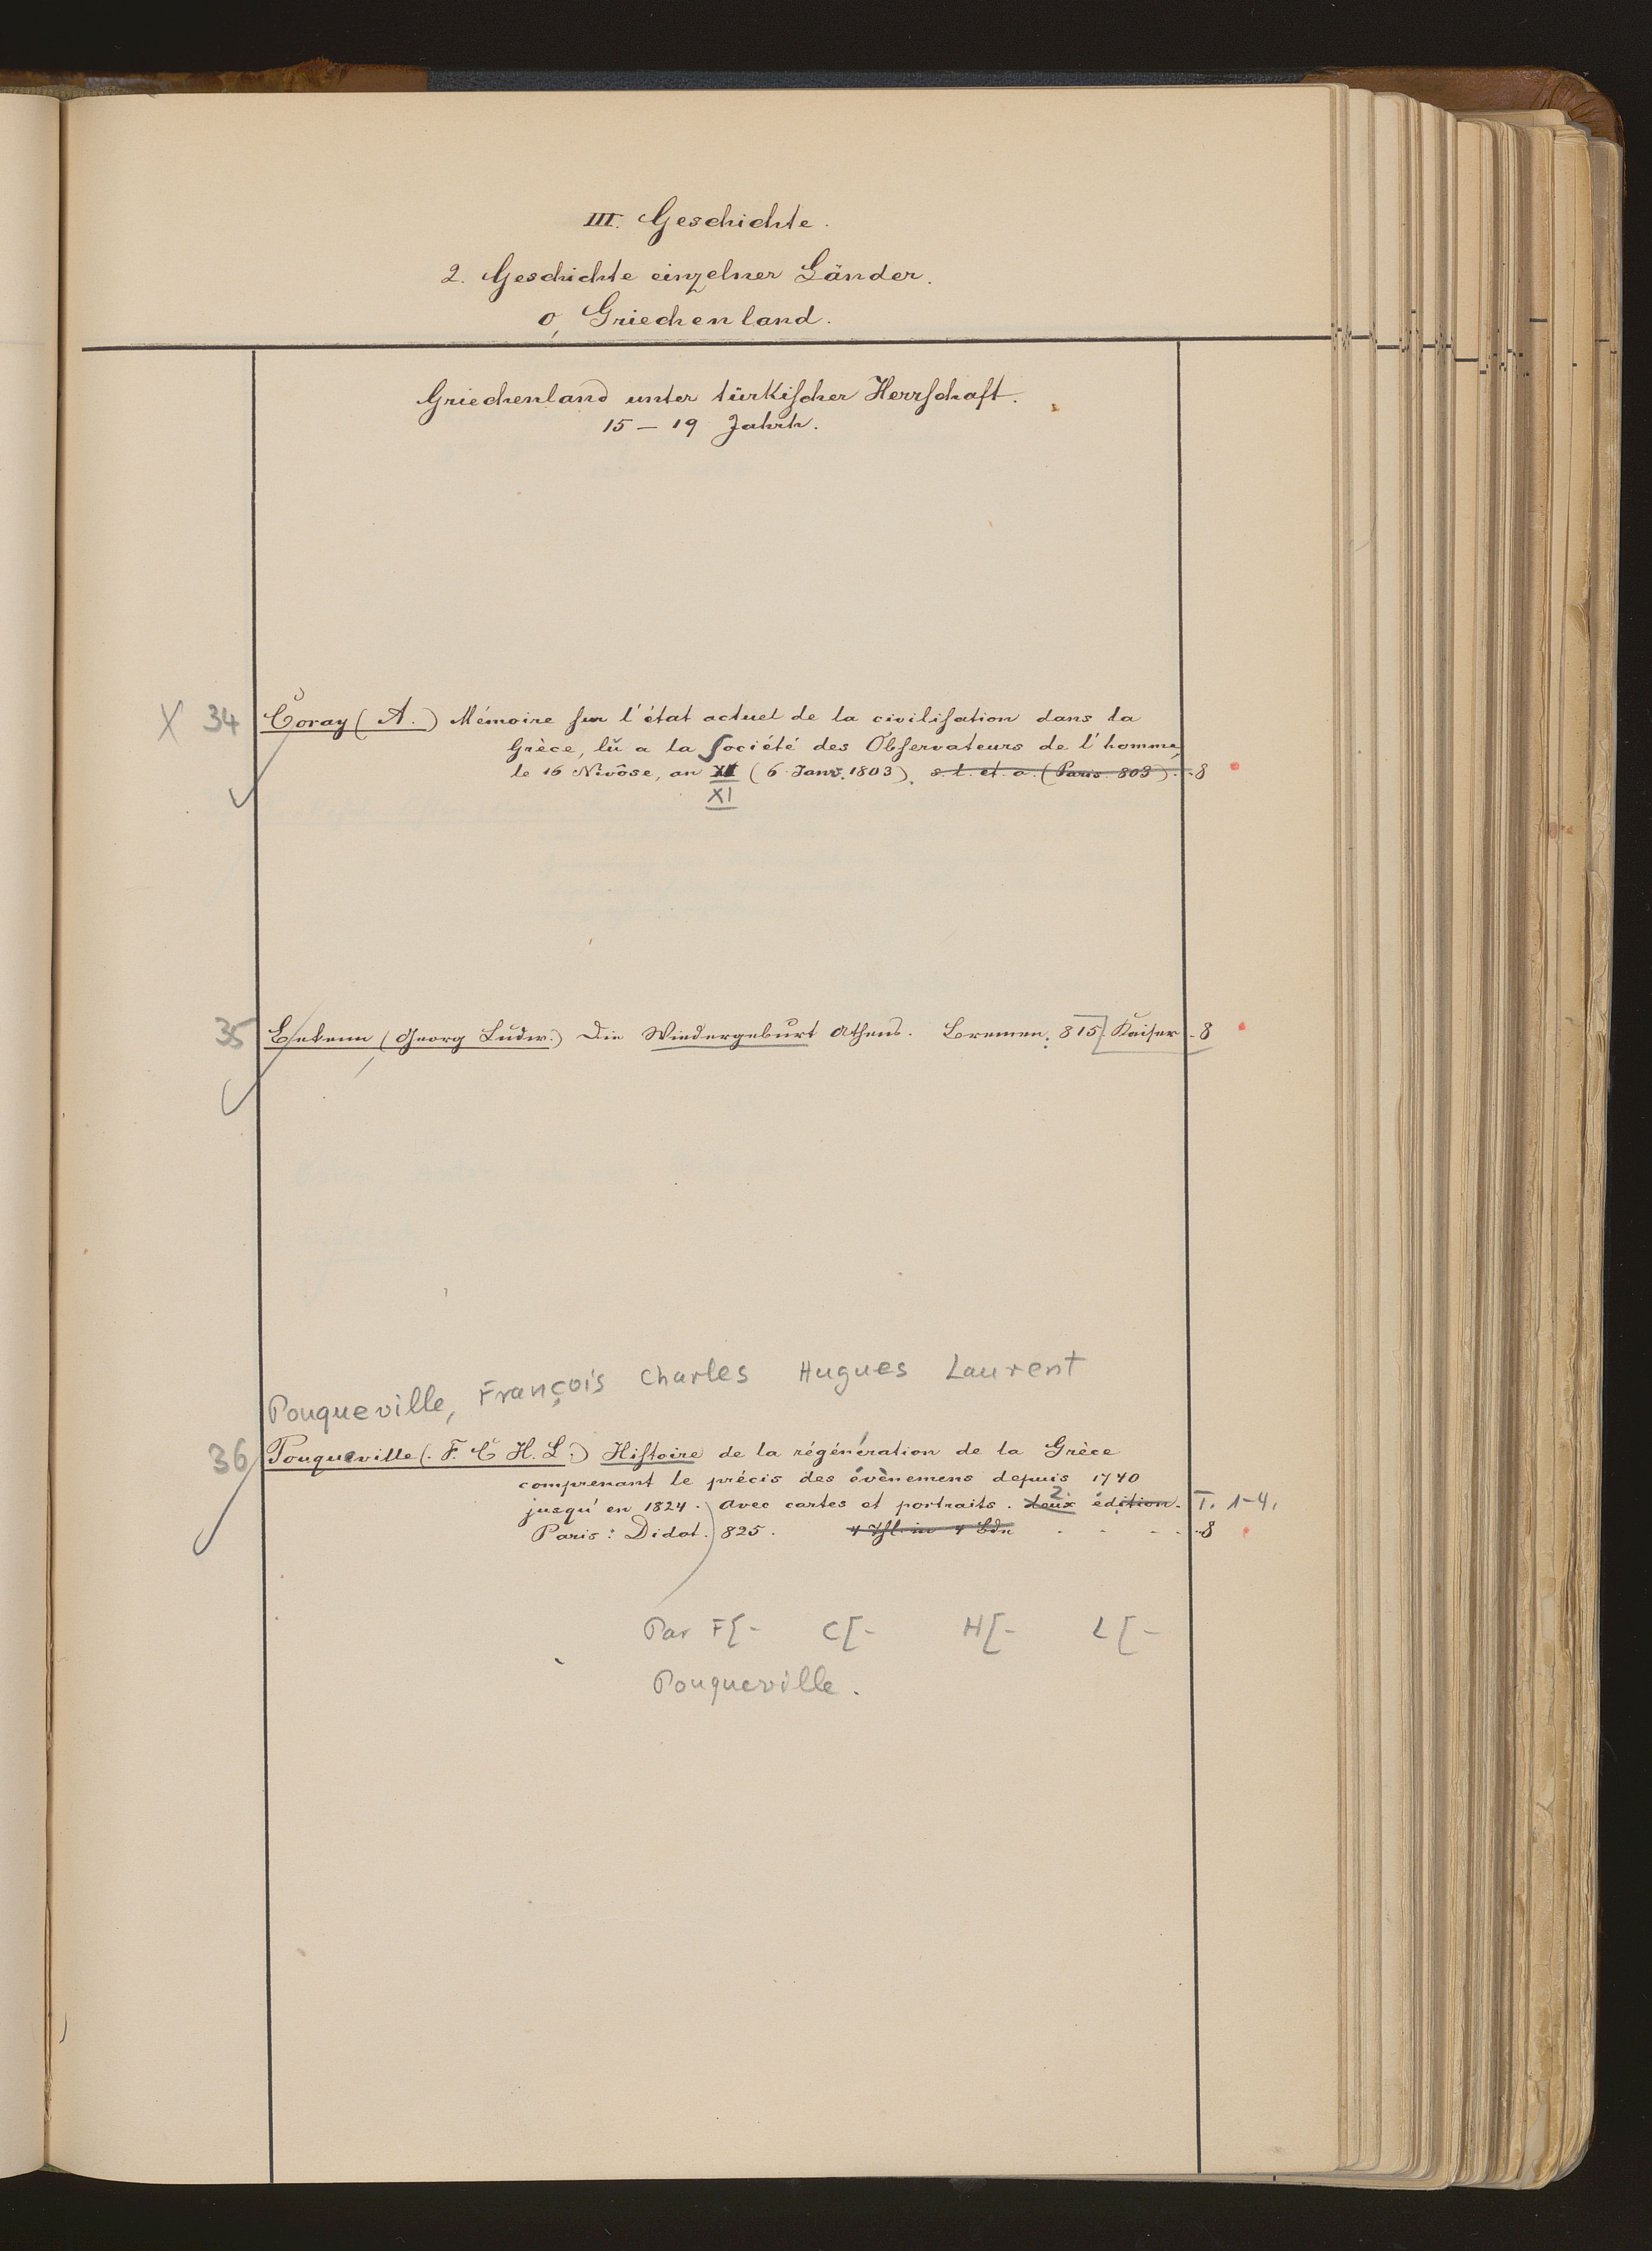 III. Geschichte.
2. Geschichte einzelner Länder.
o, Griechenland.
Griechenland unter türkischer Herrschaft.
15 – 19 Jahrh.
X 34 Coray (A.) Mémoire sur l'état actuel de la civilisation dans la
Grèce, lû a la Société des Observateurs de l'homme,
le 16 Nivôse, an XII (6 Janv. 1803). s. l. et a. (Paris 803). - 8
XI
35 (Georg Ludw.) Die Wiedergeburt Athens. Bremen: 815 [Kaiser - 8
Pouqueville, François Charles Hugues Laurent
36 Pouqueville (F. C H. L.) Histoire de la régénération de la Grèce
comprenant le précis des évènemens depuis 1740
2.
jusqu'en 1824. Avec cartes et portraits. deux édition. T. 1-4.
Paris: Didot. 825. 4 Thl. in 4 Bdn - - - - 8
Par F[- C[- H[- L[-
Pouqueville.